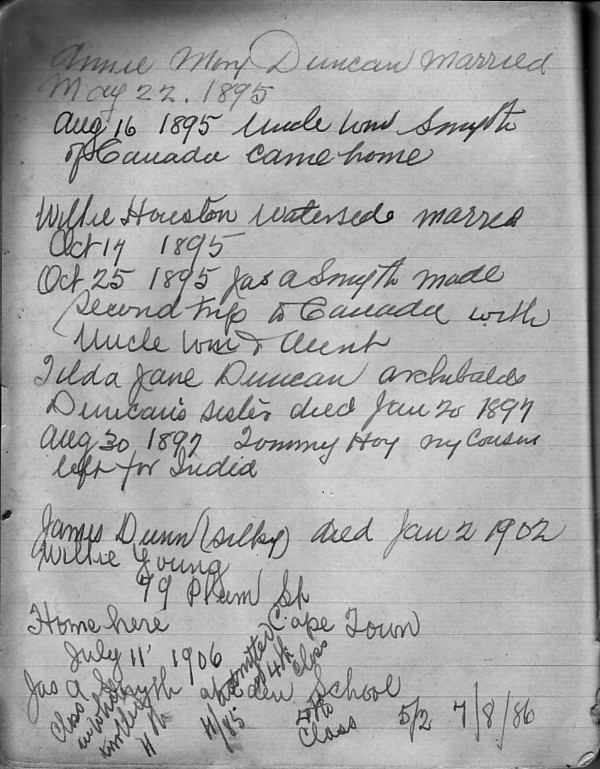 Annie Mary Duncan married
May 22. 1895
Aug 16 1895 Uncle Wm Smyth
of Canada came home
Willie Houston Waterside married
Oct 14 1895
Oct 25 1895 Jas A Smyth made
second trip to Canada with
Uncle Wm & Aunt
Tilda Jane Duncan Archibald
Duncan's sister died Jan 20 1897
Aug 30 1897 Tommy Hoy my Cousin
left for India
James Dunn (silky) died Jan 2 1902
Willie Young
79 Plum St
Home here Cape Town
July 11 1906
Jas A Smyth School
admitted
4th
Class
Class
in which
enrolled
4th
Class
5/2 7/8/86